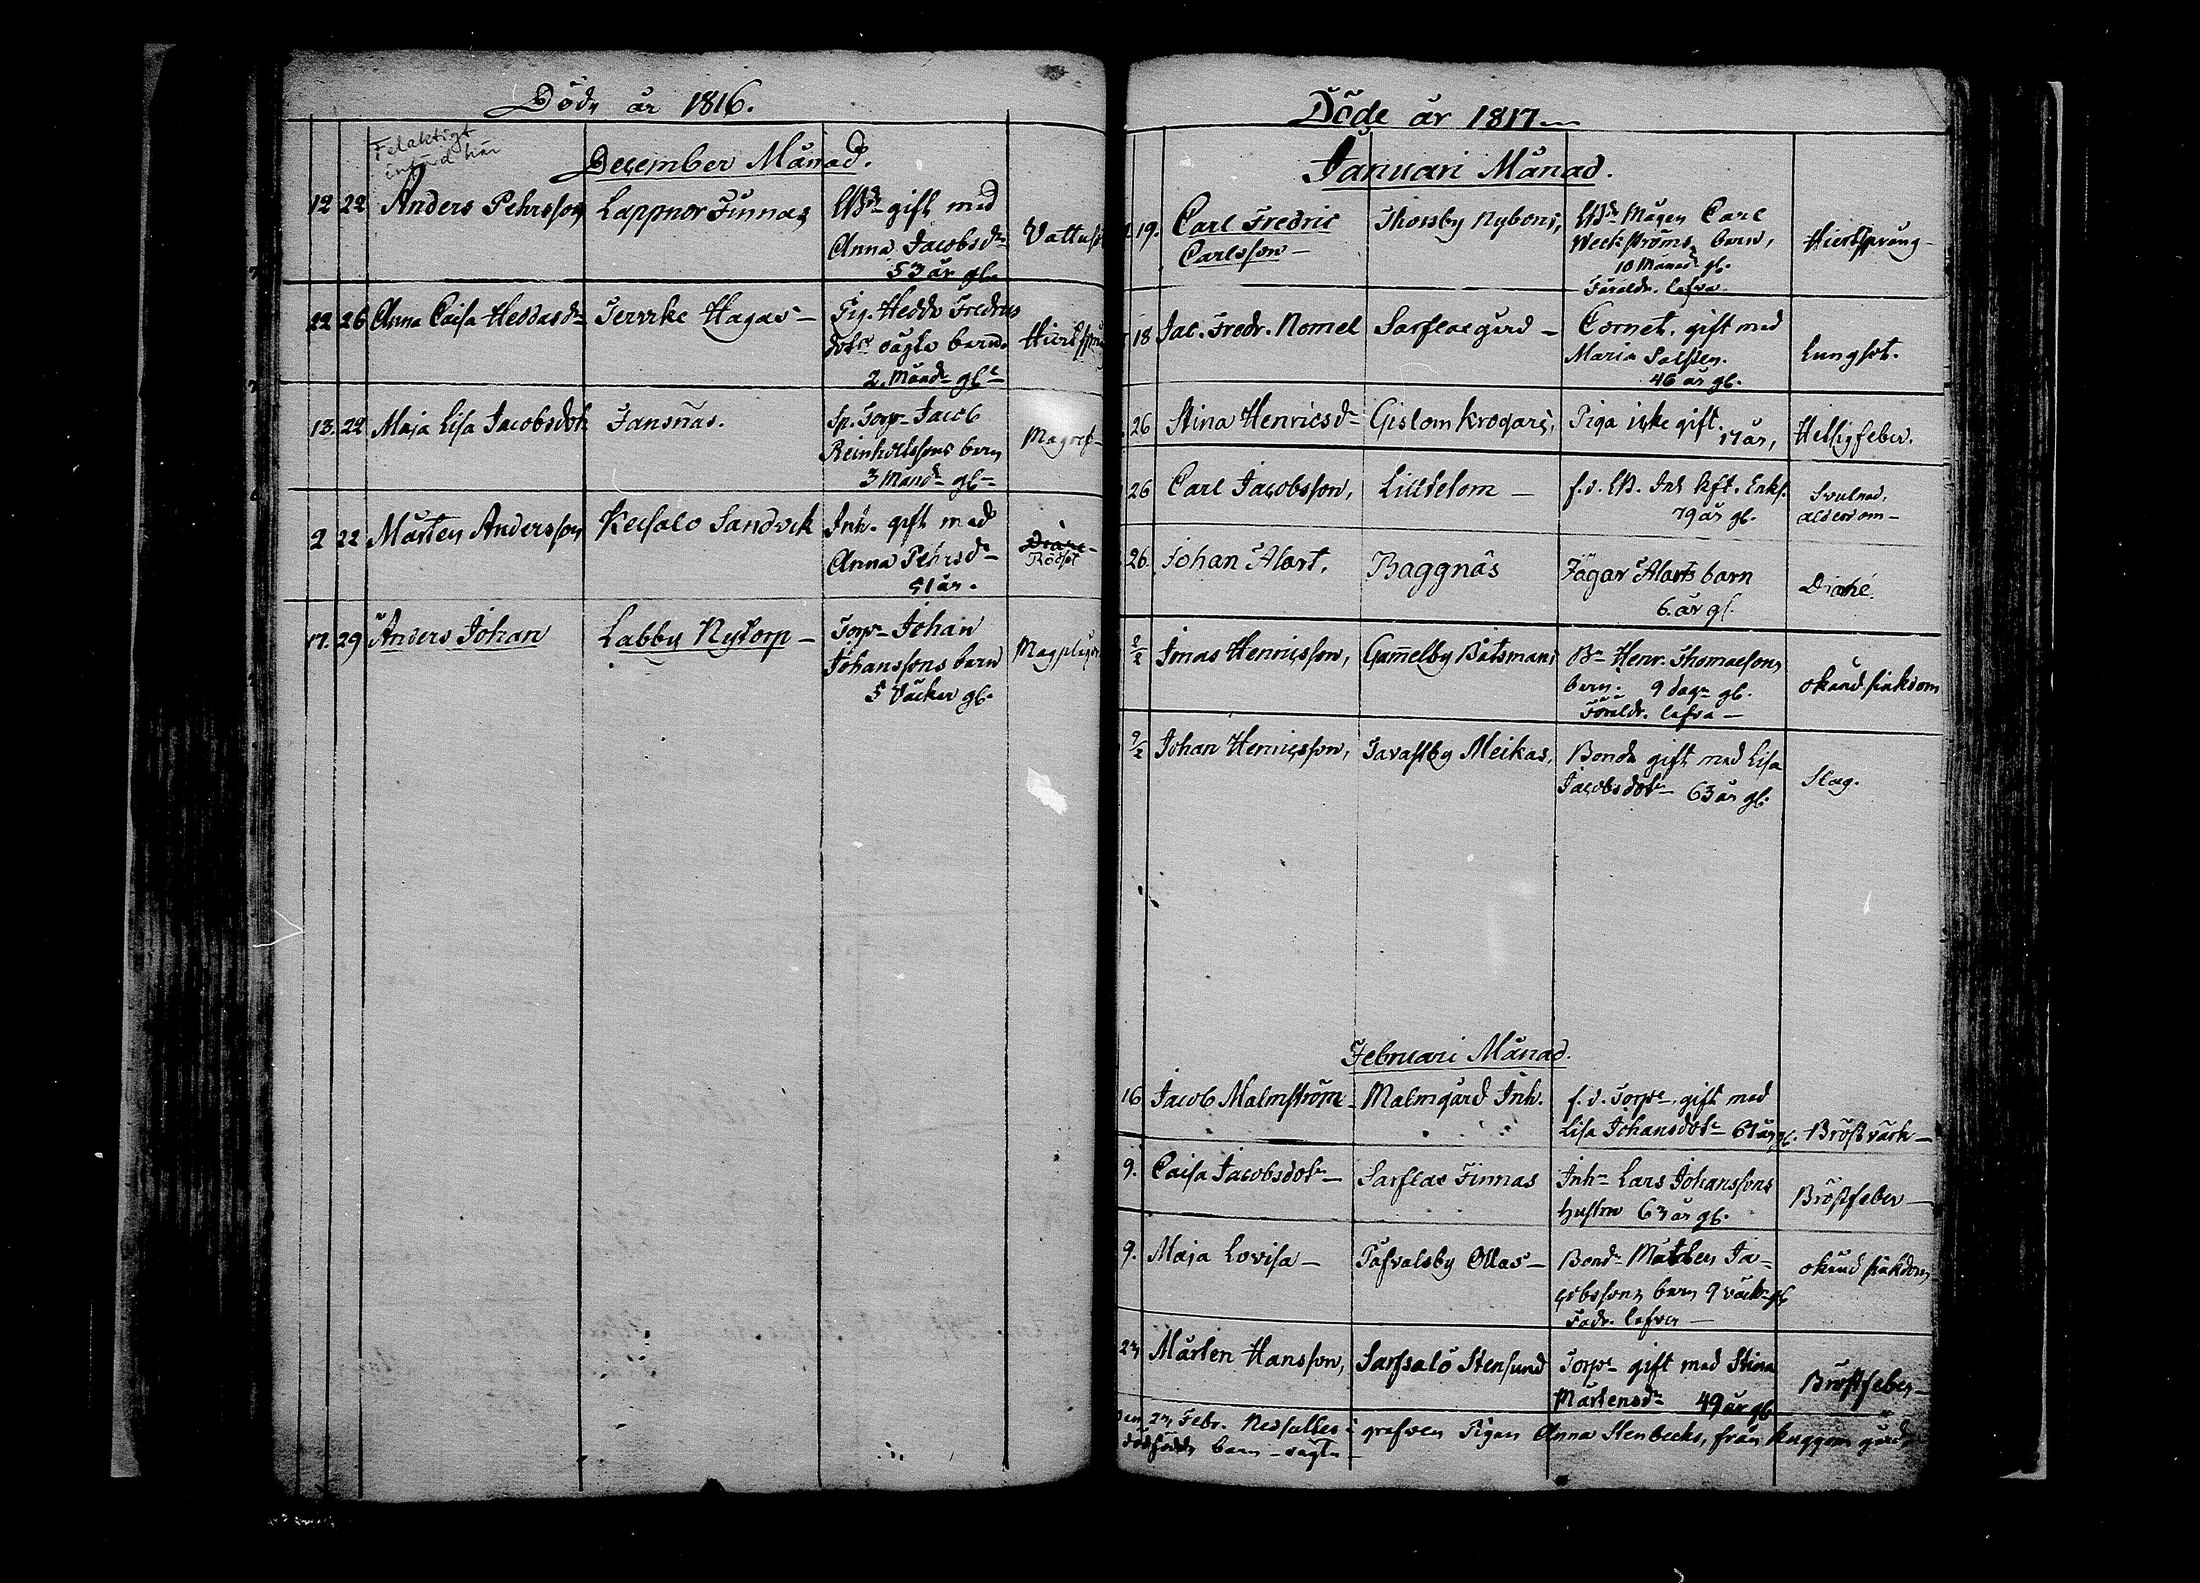 Döde år 1816.
Felaktigt
införd här
December Månad.
12 22 Anders Pehrsson Lappnor Finnas gift med
Anna Jacobsdr
53 år gl.
22 26 Anna Caisa Heddasdr Tervike Hagas - Pig. Hedda Fredrics
dotrs oägta barn
2 Måndr gl
13. 22 Maja Lisa Jacobsdotr Jansnäs. Sp. Torp. Jacob
Reinholdssons barn
3 Månd gl Magref
2 22 Mårten Andersson Keisalo Sandvik Inh. gift med
Anna Pehrsdr
51 år. Diare Rödsot
17. 29 Anders Johan Labby Nytorp - Torp. Johan
Johanssons barn
5 Väckor gl. Magplågor
Döde år 1817
Januari Månad.
19. Carl Fredric
Carlsson - Thorsby Nybons, Mågen Carl
Weckströms barn,
10 Månad gl.
Föraldr. lefva. Hiertsprång -
18 Jac. Fredr. Nomel Sarflaxgård - Cornet. gift med
Maria Salsten.
46 år gl. Lungsot.
26 Stina Henricsdr Gislom Krogars, Piga icke gift. 17 år, Hetsigfeber.
26 Carl Jacobsson, Lilltelom - f.d. Inh. Enkl.
79 år gl. Svulnad,
ålderdom -
26. Johan Alort. Baggnäs Jägar Alorts barn
6. år gl. Diarhé.
2/2 Jonas Henricsson, Gam̄elby Båtsmans Bn Henr. Thomassons
barn. 9 dagr gl.
Föraldr. lefva - okänd siukdom
9/2 Johan Henricsson, Tavastby Meikas, Bonde gift med Lisa
Jacobsdotr 63 år gl. Slag.
Februari Månad.
16 Jacob Malmström - Malmgård Inh. f.d. Torpr. gift med
Lisa Johansdotr 61 år gl. Bröstvärk -
9. Caisa Jacobsdotr - Sarflax Finnas Inhr Lars Johanssons
hustru 63 år gl. Bröstfeber -
9. Maja Lovisa - Tafvalsby Ollas - Bondr Matthes Ja-
cobssons barn 9 väckr gl
Fadr. lefver - okänd siukdom
23 Mårten Hansson, Sarfsalö Stensund Torpr gift med Stina
Mårtensdr 49 år gl Bröstfeber -
den 23 Febr. Nedsattes i grafven Pigan Anna Stenbecks, från Kuggom gård
dödfödde barn - oägta -